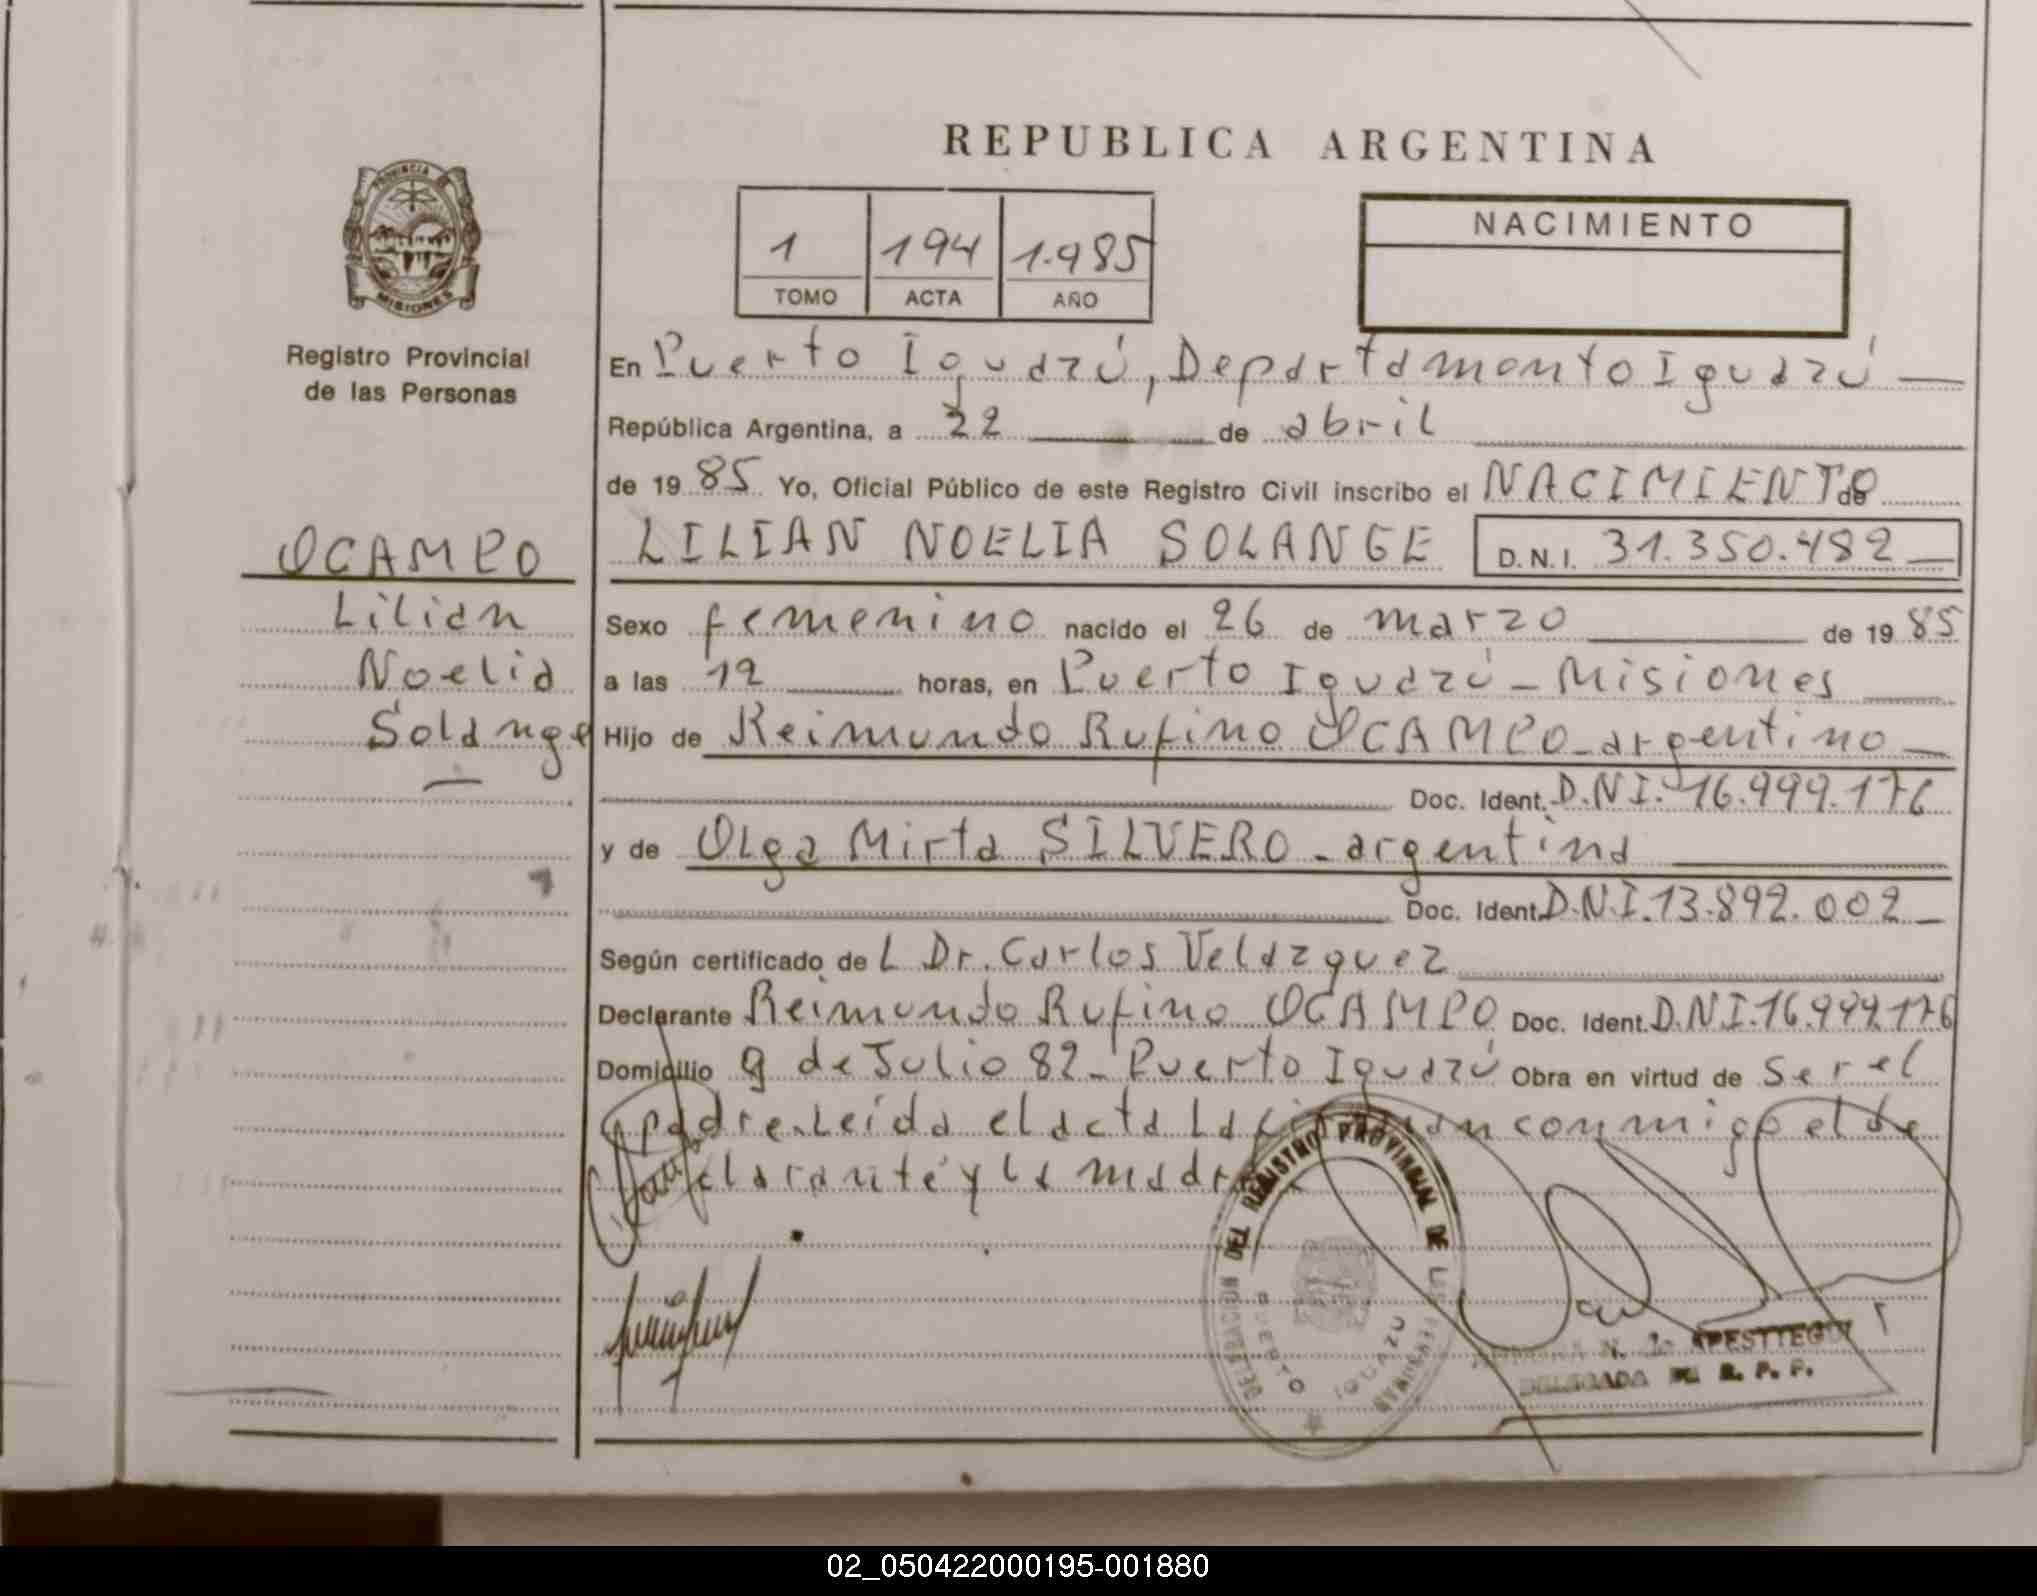 REPUBLICA ARGENTINA
PROVINCIA DE
MISIONES
Registro Provincial
de las Personas
1 194 1.985
TOMO ACTA AÑO
NACIMIENTO
En Puerto Iguazú, Departamento Iguazú
República Argentina, a 22 de abril
de 19 85 Yo, Oficial Público de este Registro Civil inscribo el NACIMIENTO de
OCAMPO
LILIAN NOELIA SOLANGE D.N.I. 31.350.482
Lilian
Noelia
Solange
Sexo femenino nacido el 26 de marzo de 19 85
a las 12 horas, en Puerto Iguazú - Misiones
Hijo de Reimundo Rufino OCAMPO - argentino
Doc. Ident. D.N.I. 16.999.176
y de Olga Mirta SILVERO - argentina
Doc. Ident. D.N.I. 13.892.002
Según certificado de L Dr. Carlos Velazquez
Declarante Reimundo Rufino OCAMPO Doc. Ident. D.N.I. 16.999.176
Domicilio 9 de Julio 82 - Puerto Iguazú Obra en virtud de ser el
padre. Leída el acta la conmigo el de
clarante y la madre
DELEGACION DEL REGISTRO PROVINCIAL DE LAS PERSONAS
PUERTO IGUAZU
DELEGADA R. P. P.
02_050422000195-001880